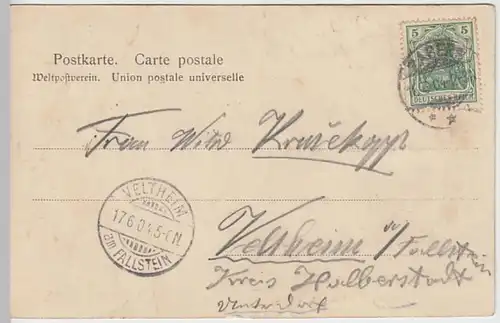 Postkarte. Carte postale
Weltpostverein. Union postale universelle
5
5
DEUTSCHES REICH
Frau Wwe
VELTHEIM
17.6.04.5-6N.
am FALLSTEIN
Veltheim a/Fallstein
Kreis Halberstadt
Unterdorf